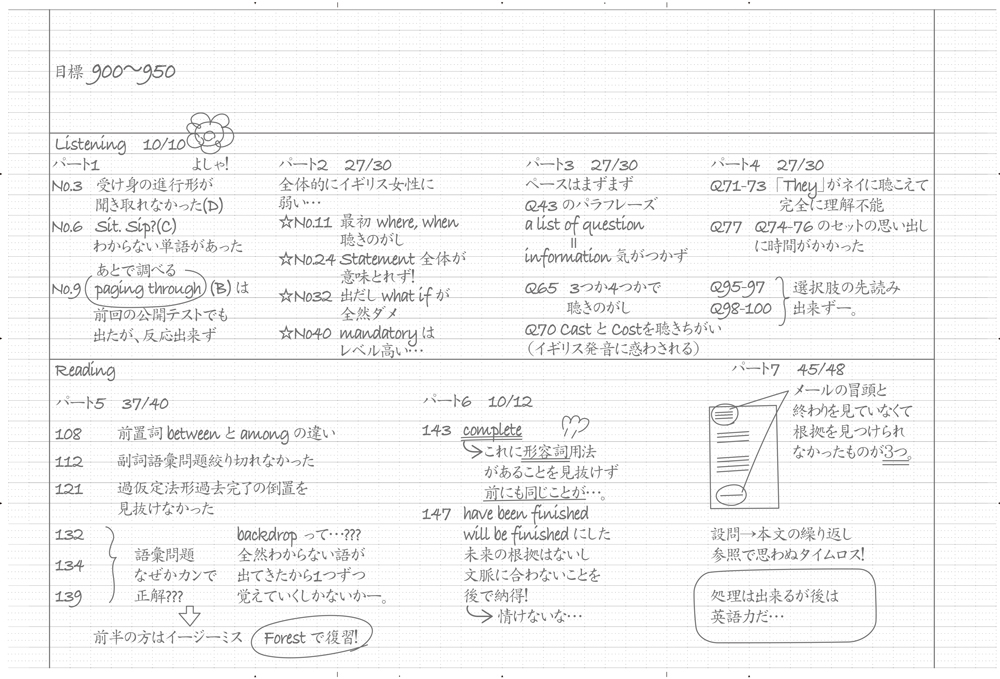 目標 900～950
Listening 10/10
パート1 よしゃ!
No.3 受け身の進行形が
聞き取れなかった(D)
No.6 Sit. Sip?(C)
わからない単語があった
あとで調べる
No.9 paging through (B) は
前回の公開テストでも
出たが、反応出来ず
パート2 27/30
全体的にイギリス女性に
弱い…
☆No.11 最初 where, when
聴きのがし
☆No.24 Statement 全体が
意味とれず!
☆No32 出だし what if が
全然ダメ
☆No40 mandatory は
レベル高い…
パート3 27/30
ペースはまずまず
Q43 のパラフレーズ
a list of question
=
information 気がつかず
Q65 3つか4つかで
聴きのがし
Q70 Cast と Costを聴きちがい
（イギリス発音に惑わされる）
パート4 27/30
Q71-73 「They」がネイに聴こえて
完全に理解不能
Q77 Q74-76 のセットの思い出し
に時間がかかった
Q95-97 選択肢の先読み
Q98-100 出来ずー。
Reading
パート5 37/40
108 前置詞 between と among の違い
112 副詞語彙問題絞り切れなかった
121 過仮定法形過去完了の倒置を
見抜けなかった
132
134
139
語彙問題
なぜかカンで
正解???
backdrop って…???
全然わからない語が
出てきたから1つずつ
覚えていくしかないかー。
前半の方はイージーミス
Forest で復習!
パート6 10/12
143 complete
これに形容詞用法
があることを見抜けず
前にも同じことが…。
147 have been finished
will be finished にした
未来の根拠はないし
文脈に合わないことを
後で納得!
情けないな…
パート7 45/48
メールの冒頭と
終わりを見ていなくて
根拠を見つけられ
なかったものが3つ。
設問→本文の繰り返し
参照で思わぬタイムロス!
処理は出来るが後は
英語力だ…